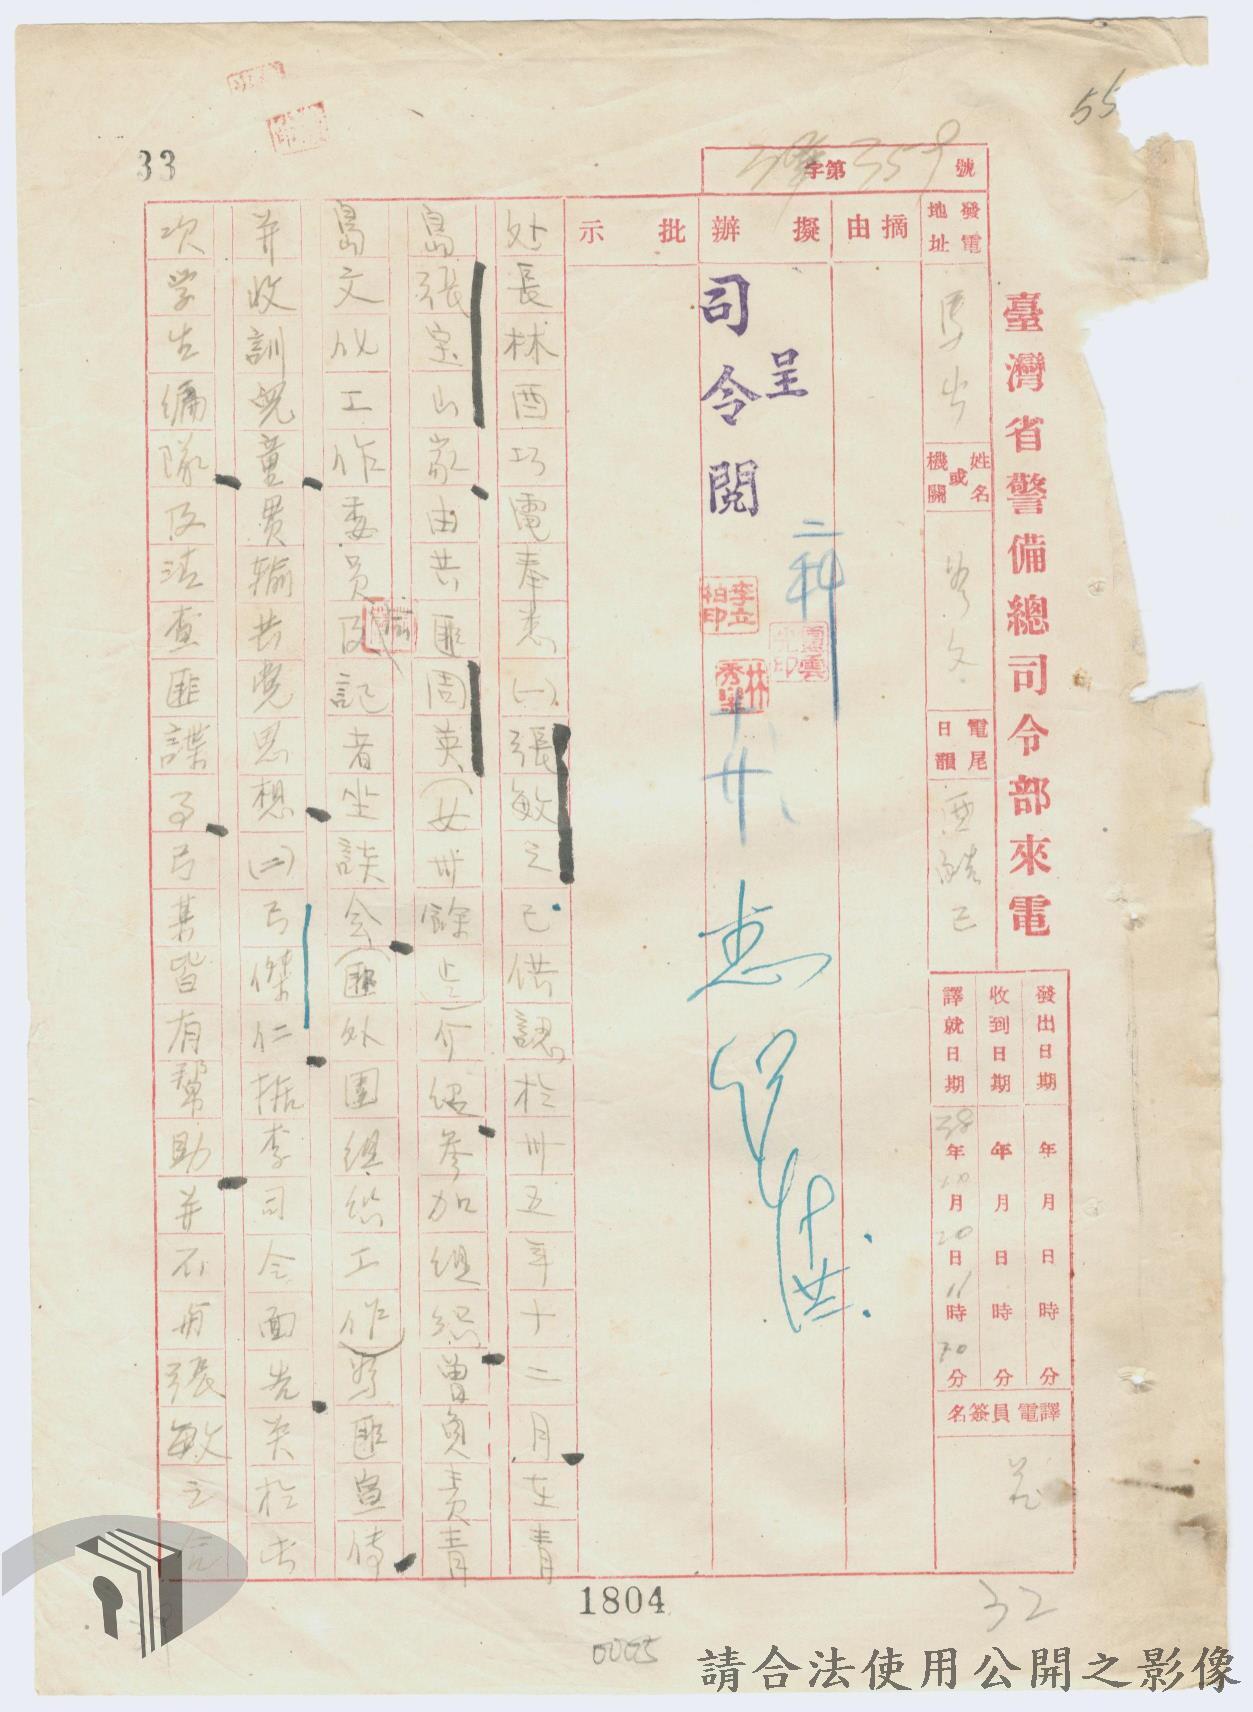 55
33
字第359號
臺灣省警備總司令部來電
發電地址
馬公
姓名或機關
電尾日韻
發出日期 年 月 日 時 分
收到日期 年 月 日 時 分
譯就日期 38年10月20日11時 分
譯電員簽名
摘由
擬辦
批示
呈
司令閱
二科
李立柏印
林秀欒
悉
处長林酉巧電奉悉(一)張敏之已供認於卅五年十二月在青
島張宗山家由共匪周英(女卅餘歲)介紹參加組織曾負責青
島文化工作委員及記者坐談会(匪外圍組織工作)為匪宣傳
并收訓兒童灌輸共党思想(二)弓傑仁據李司令面告关於
次学生編隊及清查匪諜事弓某皆有幫助并不与張敏之
1804
0005
32
請合法使用公開之影像